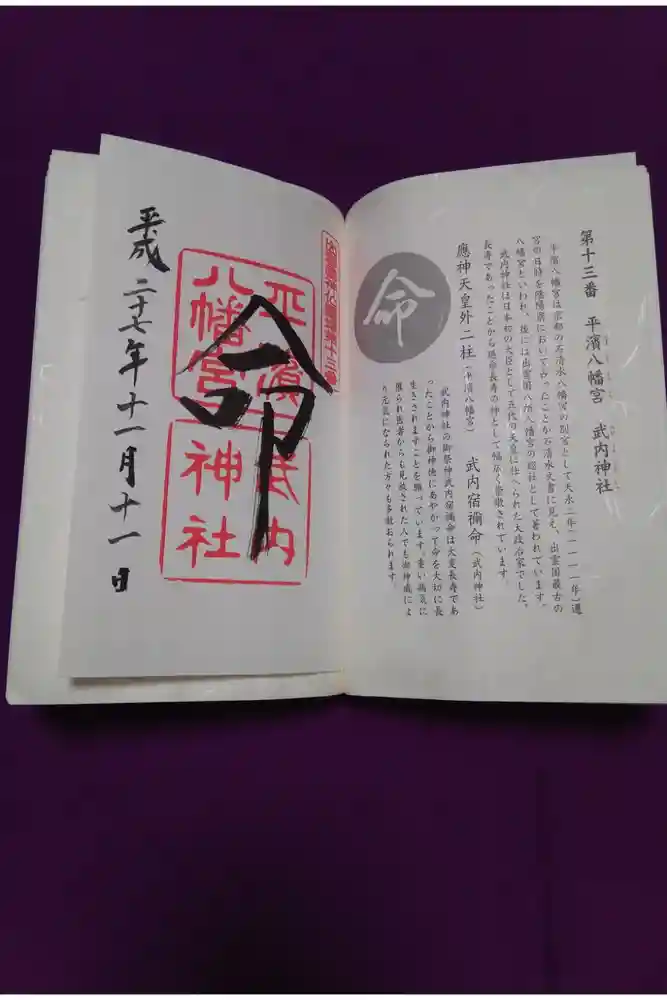 第十三番 平濱八幡宮 武内神社
平濱八幡宮は京都の石清水八幡宮の別宮として天永二年(一一一一年)遷
宮の日時を陰陽寮において占ったことが石清水文書に見え、出雲国最古の
八幡宮といわれ、後には出雲国八所八幡宮の総社として著われています。
武内神社は日本初の大臣として五代の天皇に仕へられた大政治家でした。
長寿であったことから延命長寿の神として幅広く崇敬されています。
應神天皇外二柱(平濱八幡宮) 武内宿禰命(武内神社)
武内神社の御祭神武内宿禰命は大変長寿であ
ったことから御神徳にあやかって命を大切に長
生きされますことを願っています。重い病気に
罹られ医者からも見放された人でも御神威によ
り元気になられた方々も多数おられます。
命
平濱
八幡宮
武内
神社
命
平成二十七年十一月十一日